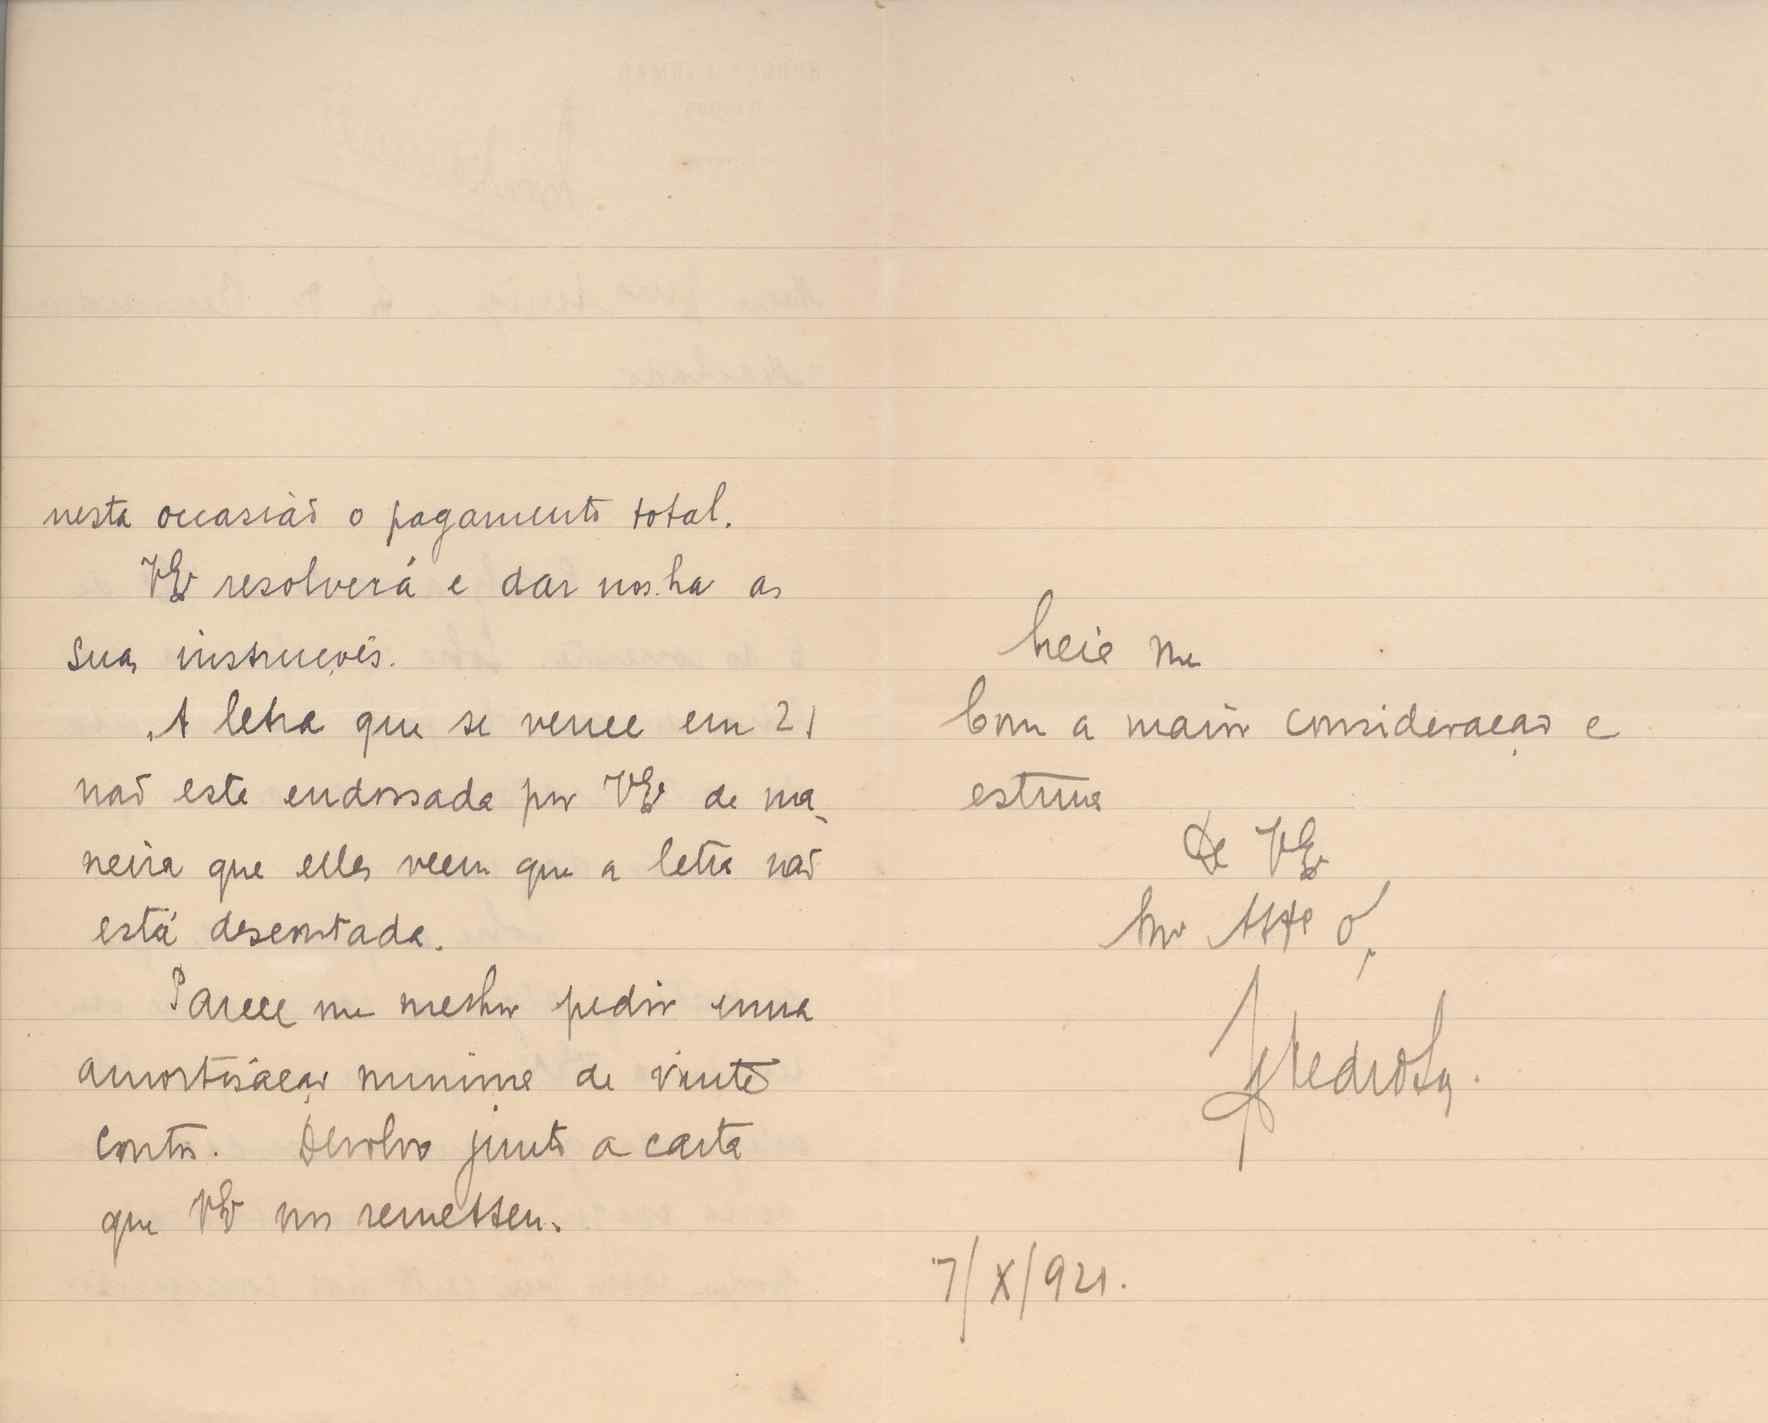 nesta occasião o pagamento total.
VEx resolverá e dar nos-ha as
suas instrucções.
A letra que se vence em 21
não esta endossada por VEx de ma-
neira que elles veem que a letra não
está descontada.
Parece me melhor pedir uma
amortisação minima de vinte
contos. Devolvo junto a carta
que VEx nos remetteu.
Creie me
Com a maior consideração e
estima
De VEx
Mto Atto
Pedrosa.
7/X/921.